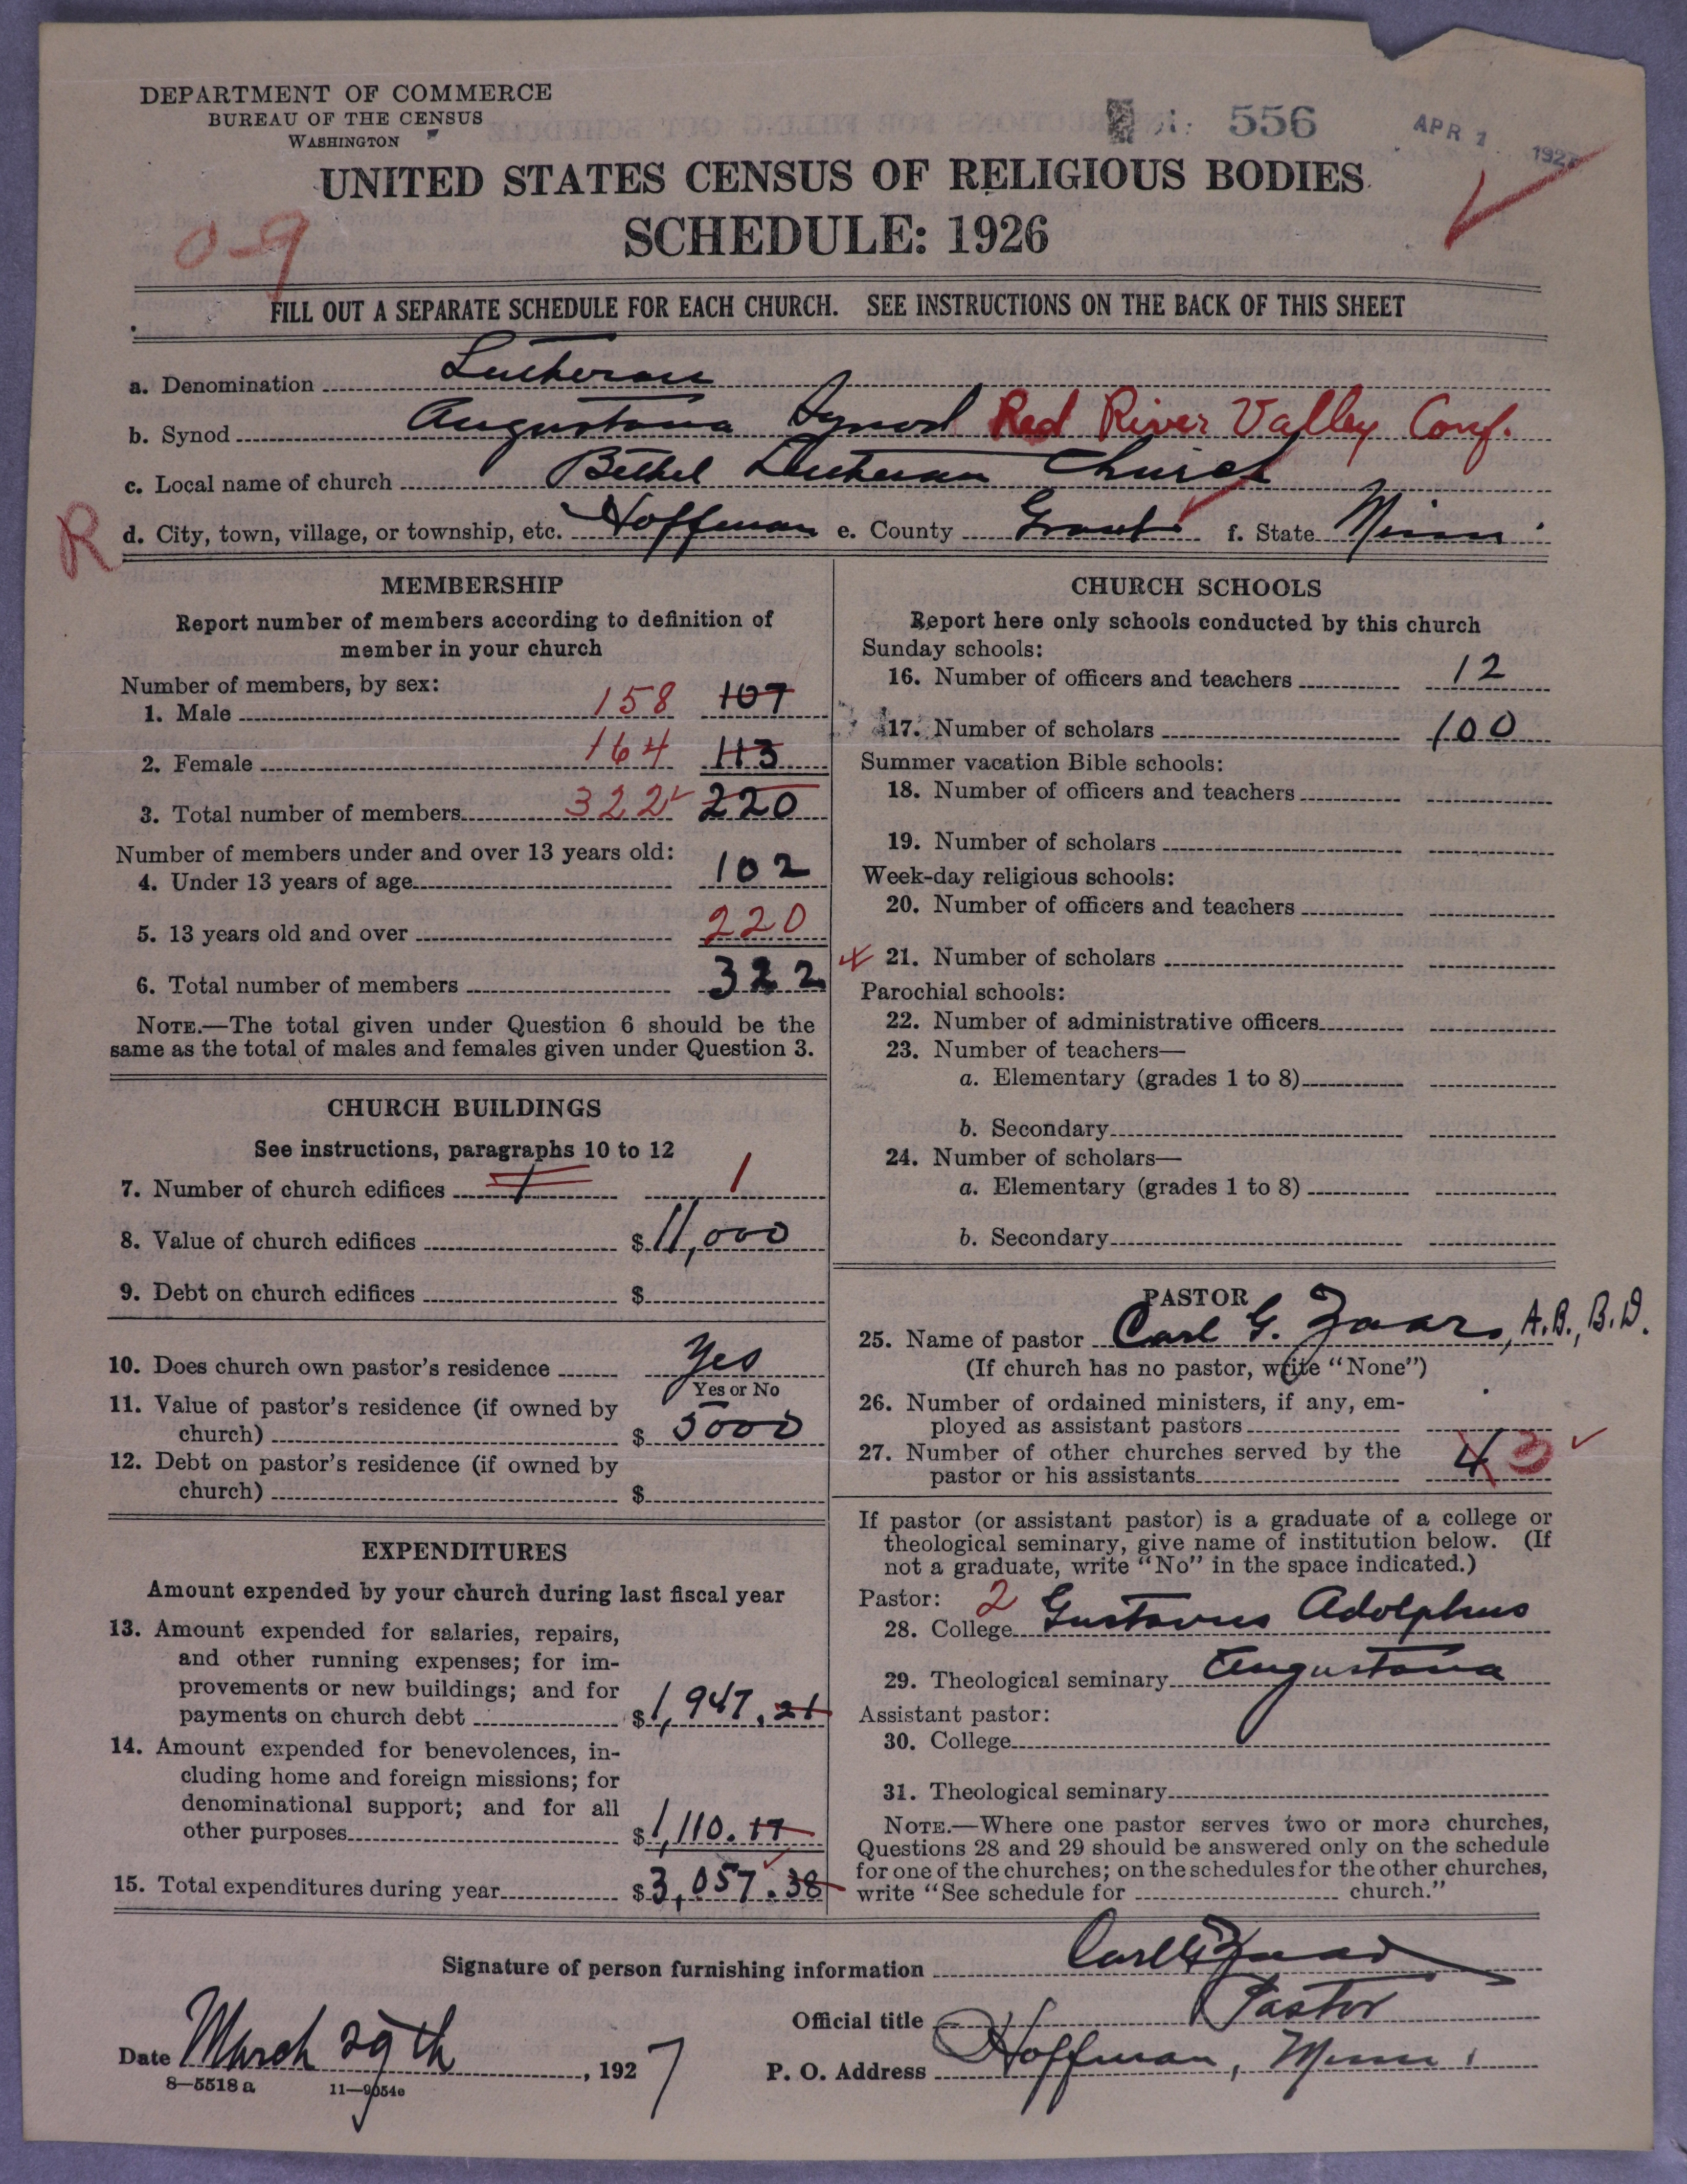 DEPARTMENT OF COMMERCE
BUREAU OF THE CENSUS
WASHINGTON
556
APR 1 1927
UNITED STATES CENSUS OF RELIGIOUS BODIES
SCHEDULE: 1926
0-9
FILL OUT A SEPARATE SCHEDULE FOR EACH CHURCH. SEE INSTRUCTIONS ON THE BACK OF THIS SHEET
a. Denomination Lutheran
b. Synod Augustana Synod Red River Valley Conf.
c. Local name of church Bethel Lutheran Church
R d. City, town, village, or township, etc. Hoffman e. County Grant f. State Minn
MEMBERSHIP
Report number of members according to definition of
member in your church
Number of members, by sex:
1. Male 158 107
2. Female 164 113
3. Total number of members 322 220
Number of members under and over 13 years old:
4. Under 13 years of age 102
5. 13 years old and over 220
6. Total number of members 322
NOTE.—The total given under Question 6 should be the
same as the total of males and females given under Question 3.
CHURCH BUILDINGS
See instructions, paragraphs 10 to 12
7. Number of church edifices 1 1
8. Value of church edifices $ 11,000
9. Debt on church edifices $
10. Does church own pastor's residence Yes
Yes or No
11. Value of pastor's residence (if owned by
church) $ 5000
12. Debt on pastor's residence (if owned by
church) $
EXPENDITURES
Amount expended by your church during last fiscal year
13. Amount expended for salaries, repairs,
and other running expenses; for im-
provements or new buildings; and for
payments on church debt $1,947.21
14. Amount expended for benevolences, in-
cluding home and foreign missions; for
denominational support; and for all
other purposes $1,110.17
15. Total expenditures during year $3,057.38
CHURCH SCHOOLS
Report here only schools conducted by this church
Sunday schools:
16. Number of officers and teachers 12
17. Number of scholars 100
Summer vacation Bible schools:
18. Number of officers and teachers
19. Number of scholars
Week-day religious schools:
20. Number of officers and teachers
21. Number of scholars
Parochial schools:
22. Number of administrative officers
23. Number of teachers—
a. Elementary (grades 1 to 8)
b. Secondary
24. Number of scholars—
a. Elementary (grades 1 to 8)
b. Secondary
PASTOR
25. Name of pastor Carl G. Zaar, A.B., B.D.
(If church has no pastor, write "None")
26. Number of ordained ministers, if any, em-
ployed as assistant pastors
27. Number of other churches served by the
pastor or his assistants 4 3
If pastor (or assistant pastor) is a graduate of a college or
theological seminary, give name of institution below. (If
not a graduate, write "No" in the space indicated.)
Pastor: 2
28. College Gustavus Adolphus
29. Theological seminary Augustana
Assistant pastor:
30. College
31. Theological seminary
NOTE.—Where one pastor serves two or more churches,
Questions 28 and 29 should be answered only on the schedule
for one of the churches; on the schedules for the other churches,
write "See schedule for church."
Signature of person furnishing information Carl G Zaar
Official title Pastor
Date March 29th, 1927
P. O. Address Hoffman, Minn.
8—5518 a 11—9054e